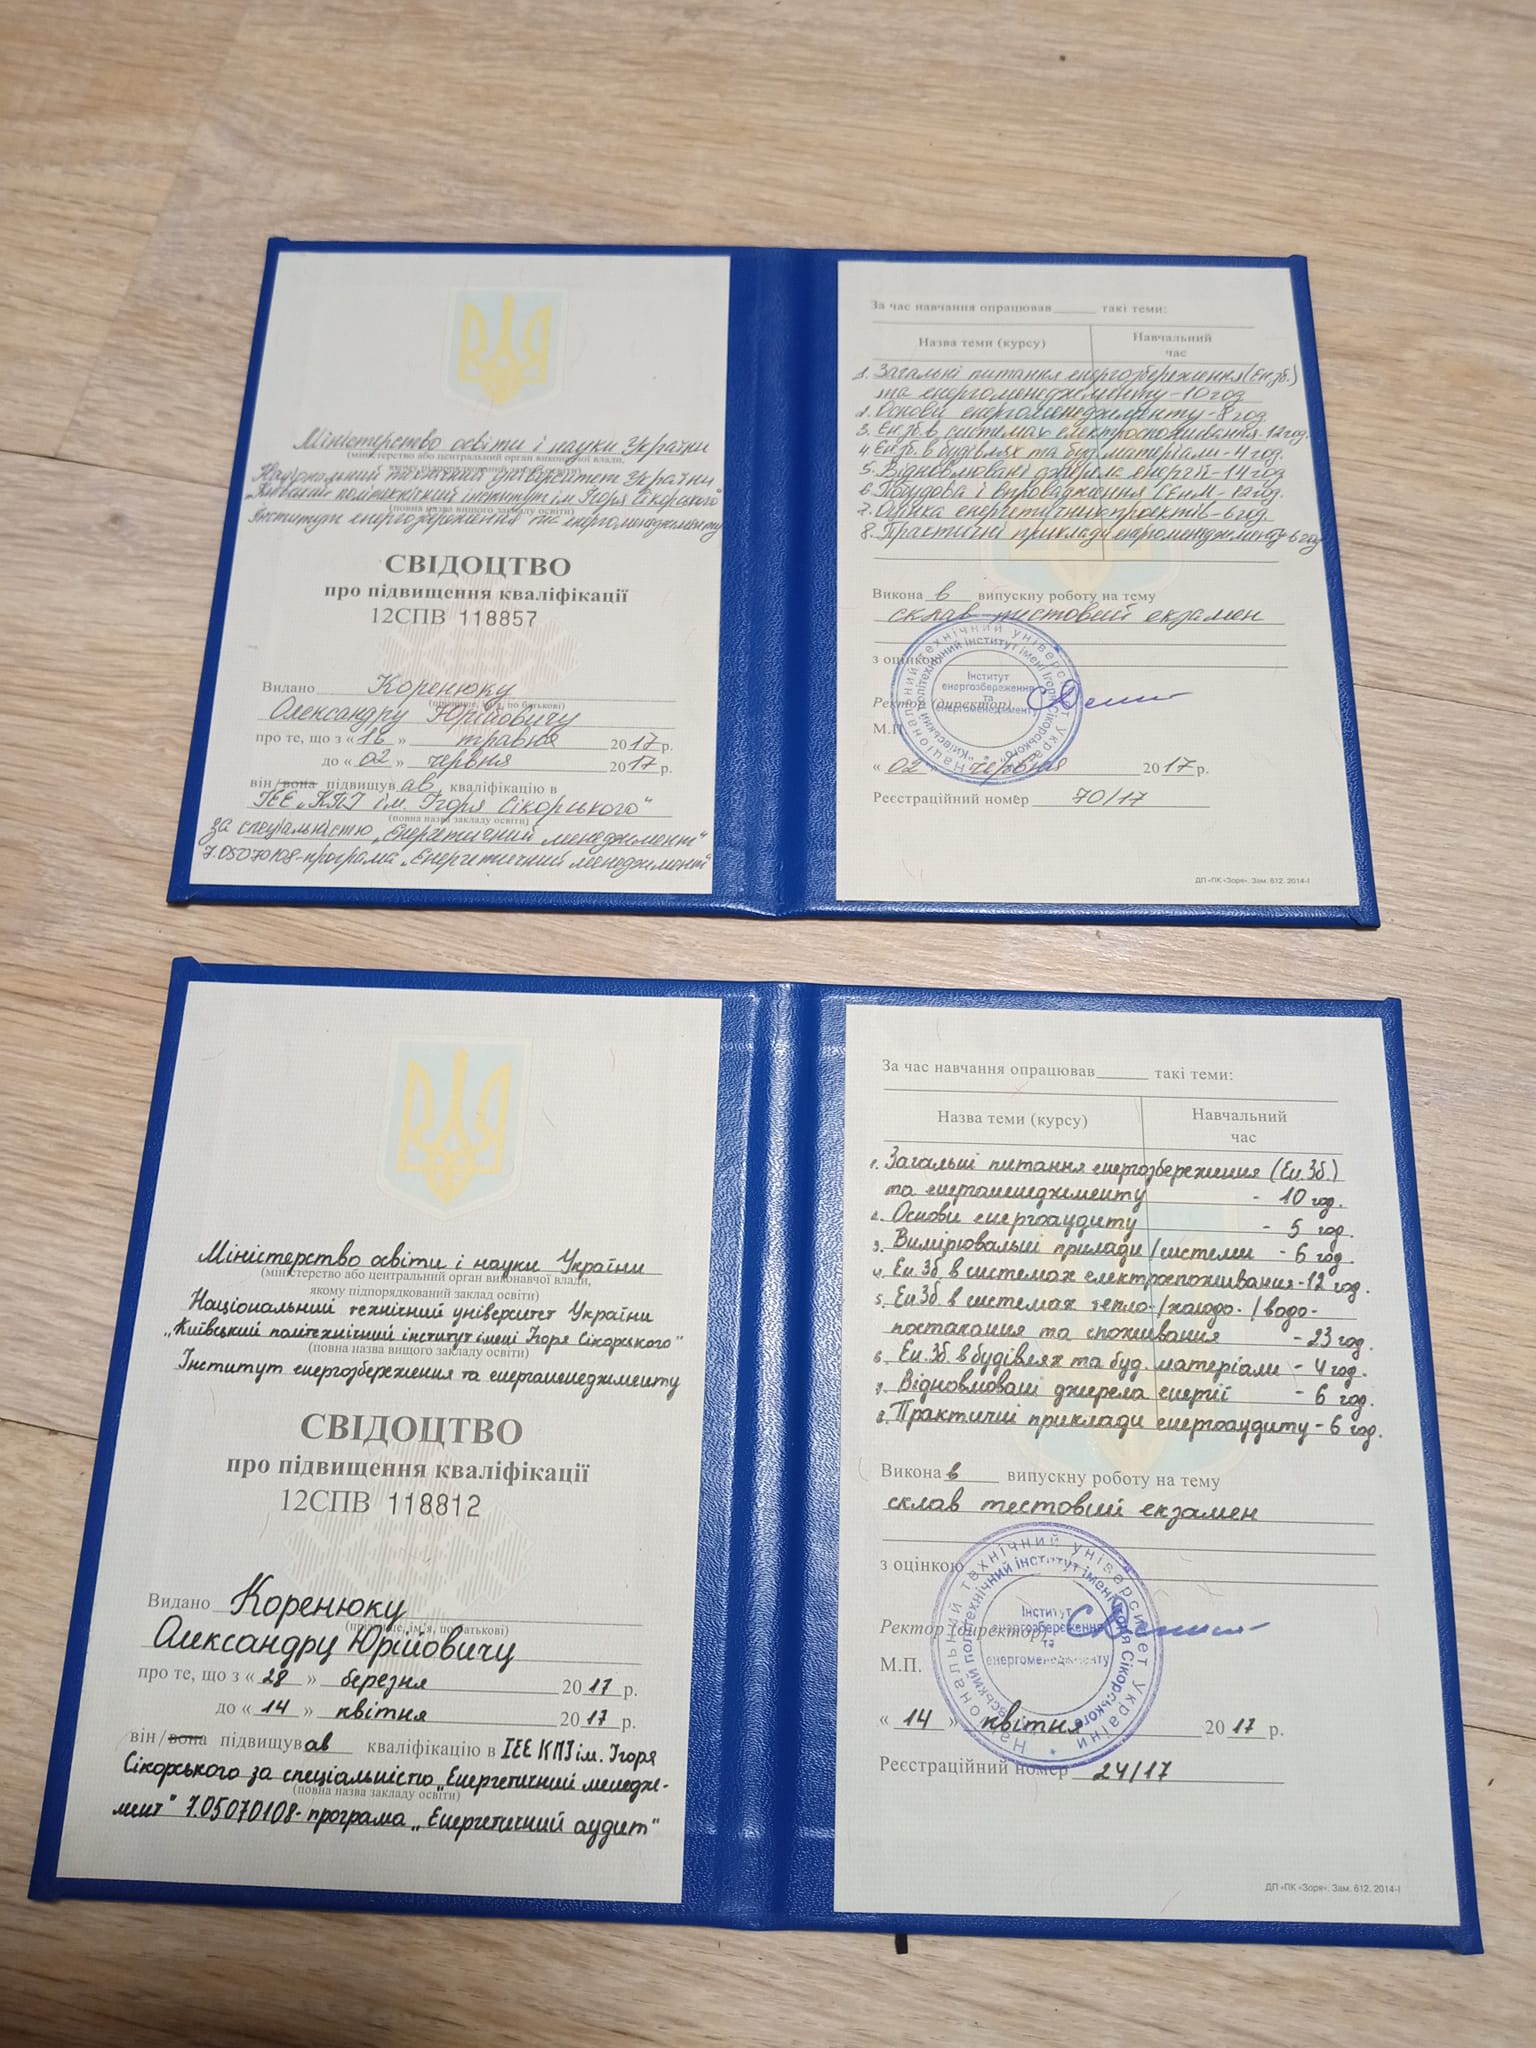 Міністерство освіти і науки України
(міністерство або центральний орган виконавчої влади,
якому підпорядкований заклад освіти)
Національний технічний університет України
„Київський політехнічний інститут ім. Ігоря Сікорського“
(повна назва вищого закладу освіти)
Інститут енергозбереження та енергоменеджменту
СВІДОЦТВО
про підвищення кваліфікації
12СПВ 118857
Видано Коренюку
(прізвище, ім'я, по батькові)
Олександру Юрійовичу
про те, що з «16» травня 2017 р.
до «02» червня 2017 р.
він/вона підвищував кваліфікацію в
ІЕЕ „КПІ ім. Ігоря Сікорського“
(повна назва закладу освіти)
за спеціальністю „Енергетичний менеджмент“
7.05070108-програма „Енергетичний менеджмент“
За час навчання опрацював______ такі теми:
Назва теми (курсу) Навчальний
час
1. Загальні питання енергозбереження (Ен.зб.)
та енергоменеджменту - 10 год
2. Основи енергоменеджменту - 8 год
3. Ен.зб. в системах електроспоживання - 12 год.
4. Ен.зб. в будівлях та буд. матеріали - 4 год.
5. Відновлювані джерела енергії - 14 год
6. Побудова і впровадження СЕнМ - 12 год.
7. Оцінка енергетичних проектів - 6 год.
8. Практичні приклади енергоменеджменту - 6 год
Виконав випускну роботу на тему
склав тестовий екзамен
з оцінкою
Ректор (директор)
М.П.
«02» червня 2017 р.
Реєстраційний номер 70/17
Національний технічний університет України
"Київський політехнічний інститут імені Ігоря Сікорського"
Інститут
енергозбереження
та
енергоменеджменту
ДП «ПК «Зоря». Зам. 612. 2014-І
Міністерство освіти і науки України
(міністерство або центральний орган виконавчої влади,
якому підпорядкований заклад освіти)
Національний технічний університет України
„Київський політехнічний інститут імені Ігоря Сікорського“
(повна назва вищого закладу освіти)
Інститут енергозбереження та енергоменеджменту
СВІДОЦТВО
про підвищення кваліфікації
12СПВ 118812
Видано Коренюку
(прізвище, ім'я, по батькові)
Олександру Юрійовичу
про те, що з «28» березня 2017 р.
до «14» квітня 2017 р.
він/вона підвищував кваліфікацію в ІЕЕ КПІ ім. Ігоря
Сікорського за спеціальністю „Енергетичний менедж-
(повна назва закладу освіти)
мент“ 7.05070108-програма „Енергетичний аудит“
За час навчання опрацював______ такі теми:
Назва теми (курсу) Навчальний
час
1. Загальні питання енергозбереження (Ен.Зб.)
та енергоменеджменту - 10 год.
2. Основи енергоаудиту - 5 год.
3. Вимірювальні прилади/системи - 6 год.
4. Ен.Зб в системах електроспоживання - 12 год.
5. Ен.Зб в системах тепло-/холодо-/водо-
постачання та споживання - 23 год.
6. Ен.Зб. в будівлях та буд. матеріали - 4 год.
7. Відновлювані джерела енергії - 6 год.
8. Практичні приклади енергоаудиту - 6 год.
Виконав випускну роботу на тему
склав тестовий екзамен
з оцінкою
Ректор (директор)
М.П.
«14» квітня 2017 р.
Реєстраційний номер 24/17
Національний технічний університет України
"Київський політехнічний інститут імені Ігоря Сікорського"
Інститут
енергозбереження
та
енергоменеджменту
ДП «ПК «Зоря». Зам. 612. 2014-І